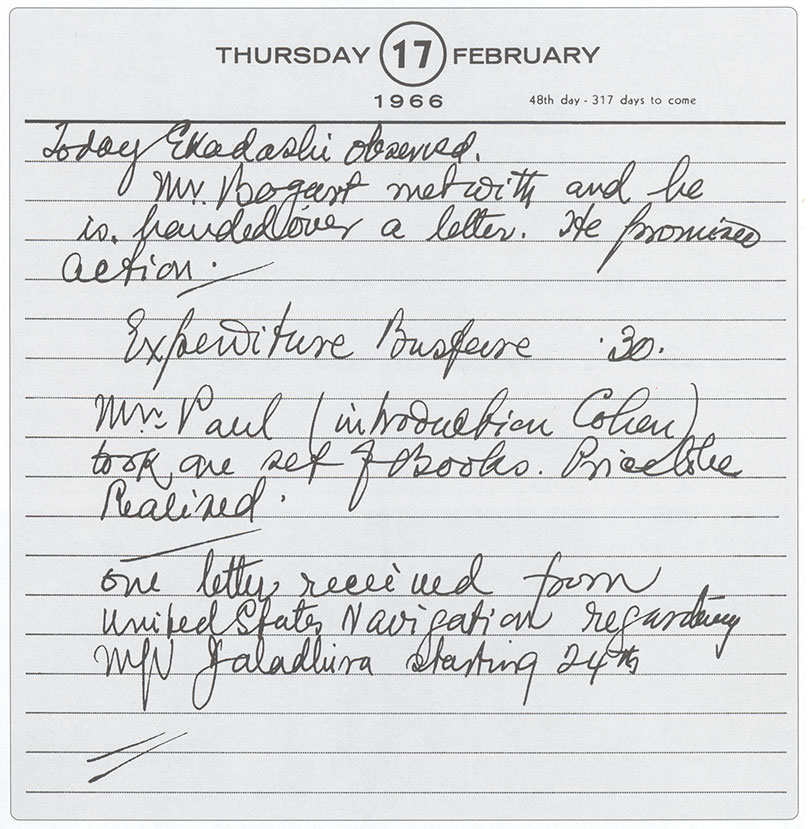 THURSDAY 17 FEBRUARY
1966 48th day - 317 days to come
Today Ekadashi observed.
Mr. Bogart met with and he
is. handed over a letter. He promised
action.
Expenditure Busfare .30.
Mr. Paul (introduction Cohen)
took one set of Books. Price to be
Realised.
one letter received from
United States Navigation regarding
M/V Jaladhira starting 24th